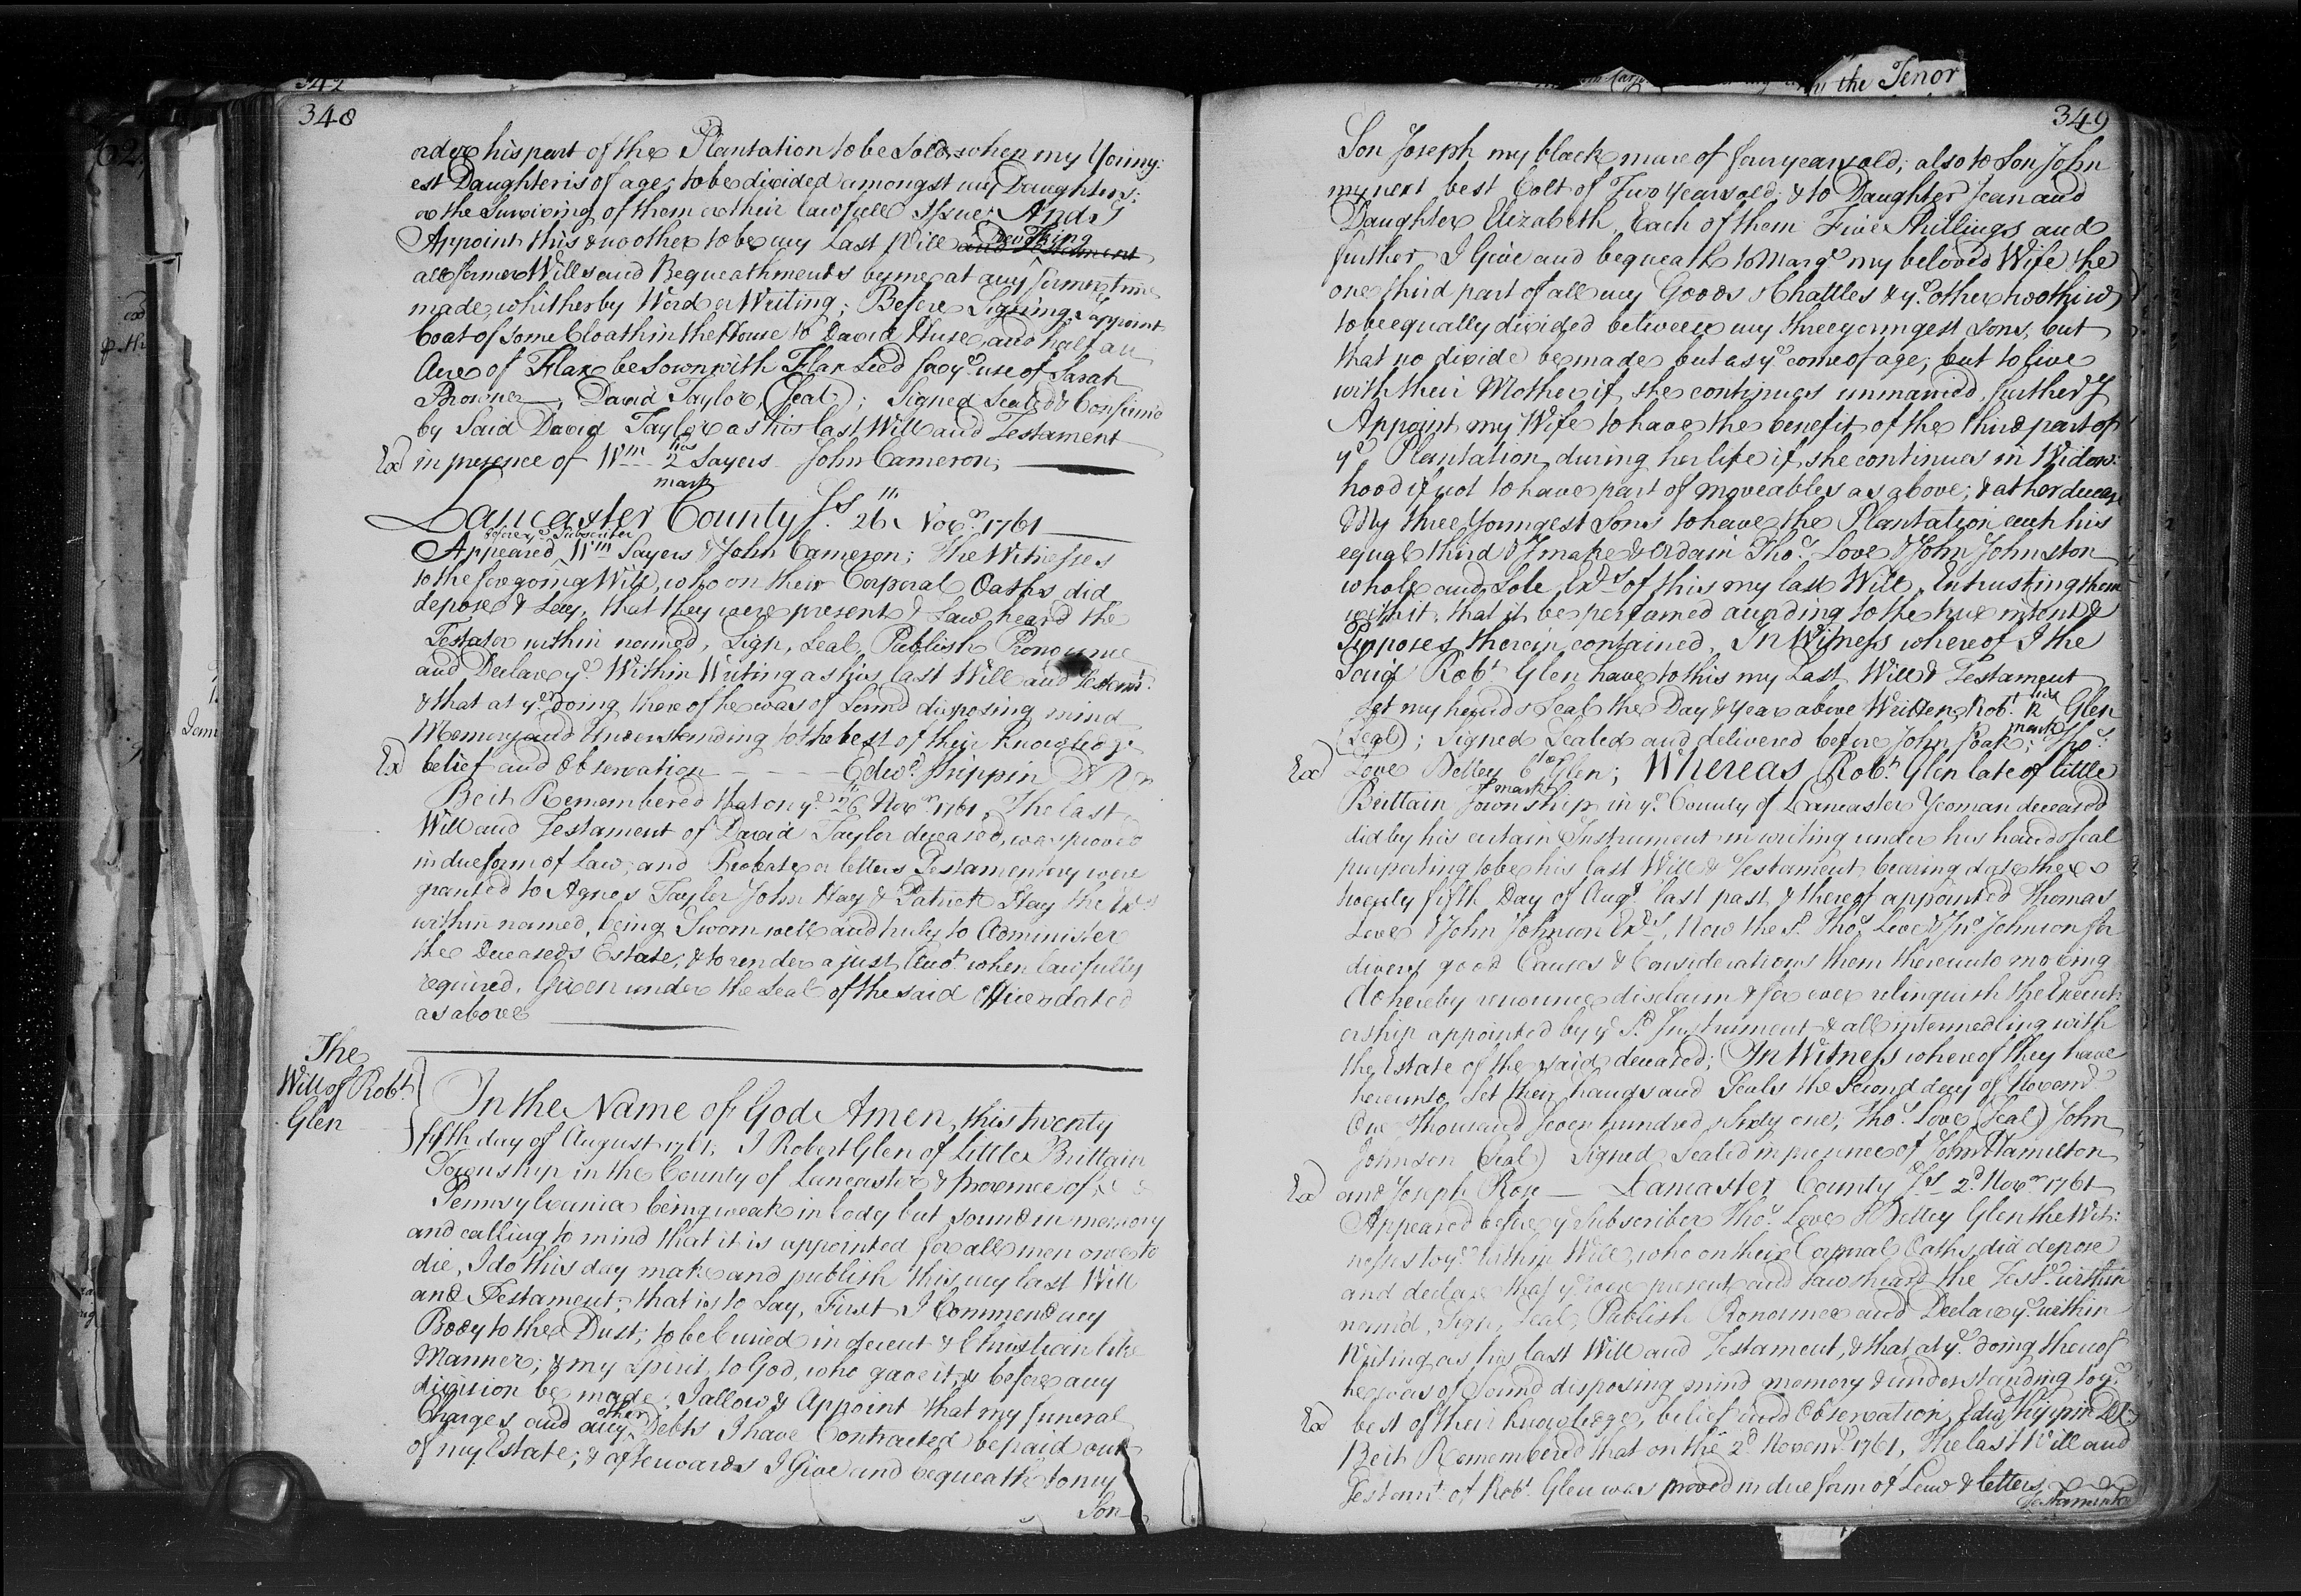 342
348
order his part of the Plantation to be sold, when my Young:
est Daughter is of age; to be divided amongst my Daughters;
or the Surviving of them or their lawfull Issue. And I
Appoint this & no other to be my last Will and Testament revoking
all former Wills and Bequeathments by me at any former time
made, whither by Word or Writing; Before Signing I appoint
Coat of some Cloath in the House to David Huse, and half an
Acre of Flax be sown with Flax Seed for yᵉ use of Sarah
Browner, David Taylor (Seal); Signed Sealed & Confirm'd
by Said David Taylor as his last Will and Testament
Ex.d in presence of Wm his 2 mark Sayers John Cameron;
Lancaster County Ss. 26th Novr 1761
Appeared before yᵉ Subscriber Wm Sayers & John Cameron; The Witnesses
to the foregoing Will, who on their Corporal Oaths did
depose & Say, that they were present & Saw, heard the
Testator within named, Sign, Seal, Publish Pronounce
and Declare yᵉ Within Writing as his last Will and Testamt.
& that at yᵉ doing thereof he was of Sound disposing mind
Memory and Understanding to the best of their Knowledge
Ex.d belief and Observation - - - - Edwd. Shippin D Rr
Be it Remembered that on yᵉ 26th Novr 1761, The last
Will and Testament of David Taylor deceased, was proved
in due form of Law, and Probate or letters Testamentory were
granted to Agnes Taylor John Hay & Patrick Hay the Exrs
within named, being Sworn well and truly to Administer
the Deceaseds Estate, & to render a just Acct. when lawfully
required. Given under the Seal of the said Office dated
as above
The
Will of Robt.
Glen
In the Name of God Amen, this twenty
fifth day of August 1761; I Robert Glen of Little Brittain
Township in the County of Lancaster & province of
Pennsylvania being weak in body but sound in memory
and calling to mind that it is appointed for all men once to
die, I do this day make and publish this my last Will
and Testament; that is to Say, First I Commend my
Body to the Dust; to be buried in decent & Christian like
Manner; & my Spirit to God, who gave it, & before any
division be made; I allow & Appoint that my funeral
Charges and any other Debts I have Contracted be paid out
of my Estate; & afterwards I Give and bequeath to my
Son
the Tenor
349
Son Joseph my black mare of four years old; also to Son John
my next best Colt of Two years old; & to Daughter Jean and
Daughter Elizabeth Each of them Five Shillings and
further I Give and bequeath to Margt. my beloved Wife the
one third part of all my Goods & Chattles & yᵉ other two thirds
to be equally divided between my three youngest sons, but
that no divide be made but as yᵉ come of age; but to live
with their Mother if she continues unmarried, further I
Appoint my Wife to have the benefit of the third part of
yᵉ Plantation during her life if she continues in Widow:
hood if not to have part of moveables as above; & at her decease
My three Youngest Sons to have the Plantation each his
equal third & I make & Ordain Thos. Love & John Johnston
whole and Sole Exrs of this my last Will, Entrusting them
with it, that it be performed according to the true intent &
Purposes therein contained, In Witness whereof I the
Said Robt. Glen have to this my Last Will & Testament
Set my hand & Seal the Day & year above Written, Robt. his R mark Glen
(Seal); Signed Sealed and delivered before John Poak; Thos.
Ex.d Love Bettey her mark Glen; Whereas Robt. Glen late of little
Brittain Township in yᵉ County of Lancaster Yeoman deceased
did by his certain Instrument in writing under his hand & Seal
purporting to be his last Will & Testament bearing date the
twenty fifth Day of Augt. last past, & thereof appointed Thomas
Love & John Johnson Exrs, Now the sd. Thos. Love & Jno. Johnson for
divers good Causes & Considerations them thereunto moving
do hereby renounce disclaim & for ever relinquish the Execut:
orship appointed by yᵉ Sd. Instrument & all intermedling with
the Estate of the said deceased; In Witness whereof they have
hereunto Set their hands and Seals the Second day of Novemr.
One thousand Seven hundred sixty one; Thos. Love (Seal) John
Johnson (Seal) Signed Sealed in presence of John Hamilton
Ex.d and Joseph Rose — Lancaster County Ss 2d Novr 1761
Appeared before yᵉ Subscriber Thos. Love & Bettey Glen the Wit:
nesses to yᵉ within Will, who on their Corporal Oaths did depose
and declare that yᵉ were present and Saw heard the Testr. within
nam'd, Sign, Seal, Publish Pronounce and Declare yᵉ within
Writing as his last Will and Testament, & that at yᵉ doing thereof
he was of Sound disposing mind memory & understanding to yᵉ
Ex.d best of their knowledge, belief and Observation, Edwd. Shippin
Be it Remembered that on the 2d Novemr. 1761, The last Will and
Testamt. of Robt. Glen was proved in due form of Law & letters
Testamentory